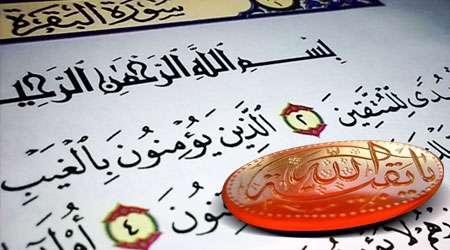 سُورَةُ البَقَرَةِ
بِسْمِ اللَّهِ الرَّحْمَٰنِ الرَّحِي
دًى لِلْمُتَّقِينَ ٢ الَّذِينَ يُؤْمِنُونَ بِالْغَيْبِ
نُونَ ٤ أُوْلَ
يا بقية الله